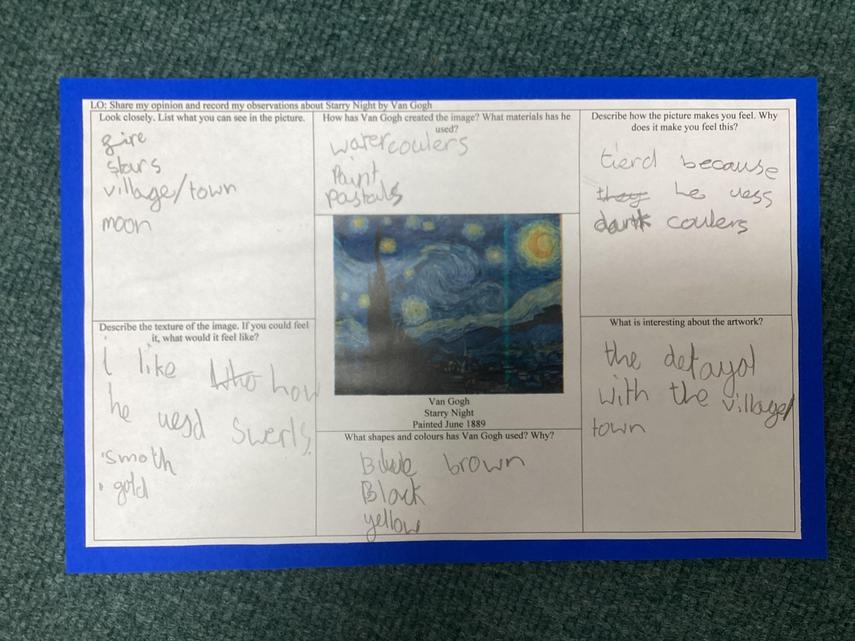 LO: Share my opinion and record my observations about Starry Night by Van Gogh
Look closely. List what you can see in the picture.
fire
stars
village/town
moon
How has Van Gogh created the image? What materials has he
used?
watercoulers
Paint
pastals
Describe how the picture makes you feel. Why
does it make you feel this?
tierd because
they he uess
dark coulers
Describe the texture of the image. If you could feel
it, what would it feel like?
i like how
he uesd swerls
smoth
gold
Van Gogh
Starry Night
Painted June 1889
What shapes and colours has Van Gogh used? Why?
Blue brown
Black
yellow
What is interesting about the artwork?
the detayol
with the village/
town